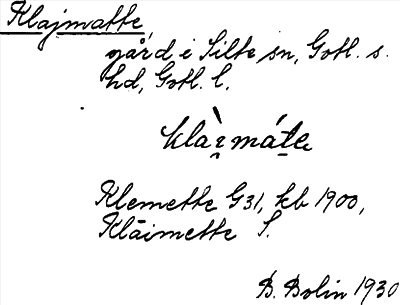 Klajmatte,
gård i Silte sn, Gotl. s.
hd, Gotl. l.
klàɪ̯máte
Klemette G31, kb 1900,
Kläimette S.
B. Bolin 1930